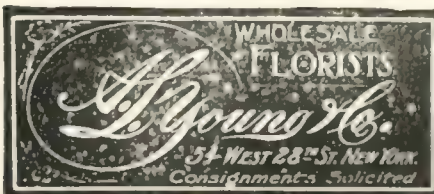 WHOLESALE
FLORISTS
A.L. Young & Co.
54 WEST 28TH ST. NEW YORK.
Consignments Solicited